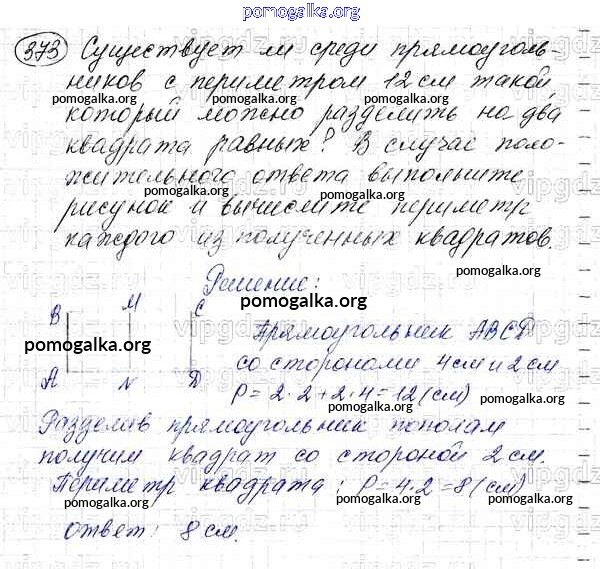 pomogalka.org
373 Существует ли среди прямоуголь-
ников с периметром 12 см такой,
pomogalka.org pomogalka.org
который можно разделить на два
квадрата равных? В случае поло-
pomogalka.org pomogalka.org
жительного ответа выполните
pomogalka.org
рисунок и вычислите периметр
pomogalka.org pomogalka.org
каждого из полученных квадратов.
Решение:
B M C
pomogalka.org
Прямоугольник ABCD
pomogalka.org
со сторонами 4 см и 2 см
A N D
P = 2·2+2·4=12 (см)
pomogalka.org
Разделив прямоугольник пополам
pomogalka.org
получим квадрат со стороной 2 см.
Периметр квадрата: P=4·2=8 (см)
pomogalka.org pomogalka.org
ответ: 8 см.
pomogalka.org